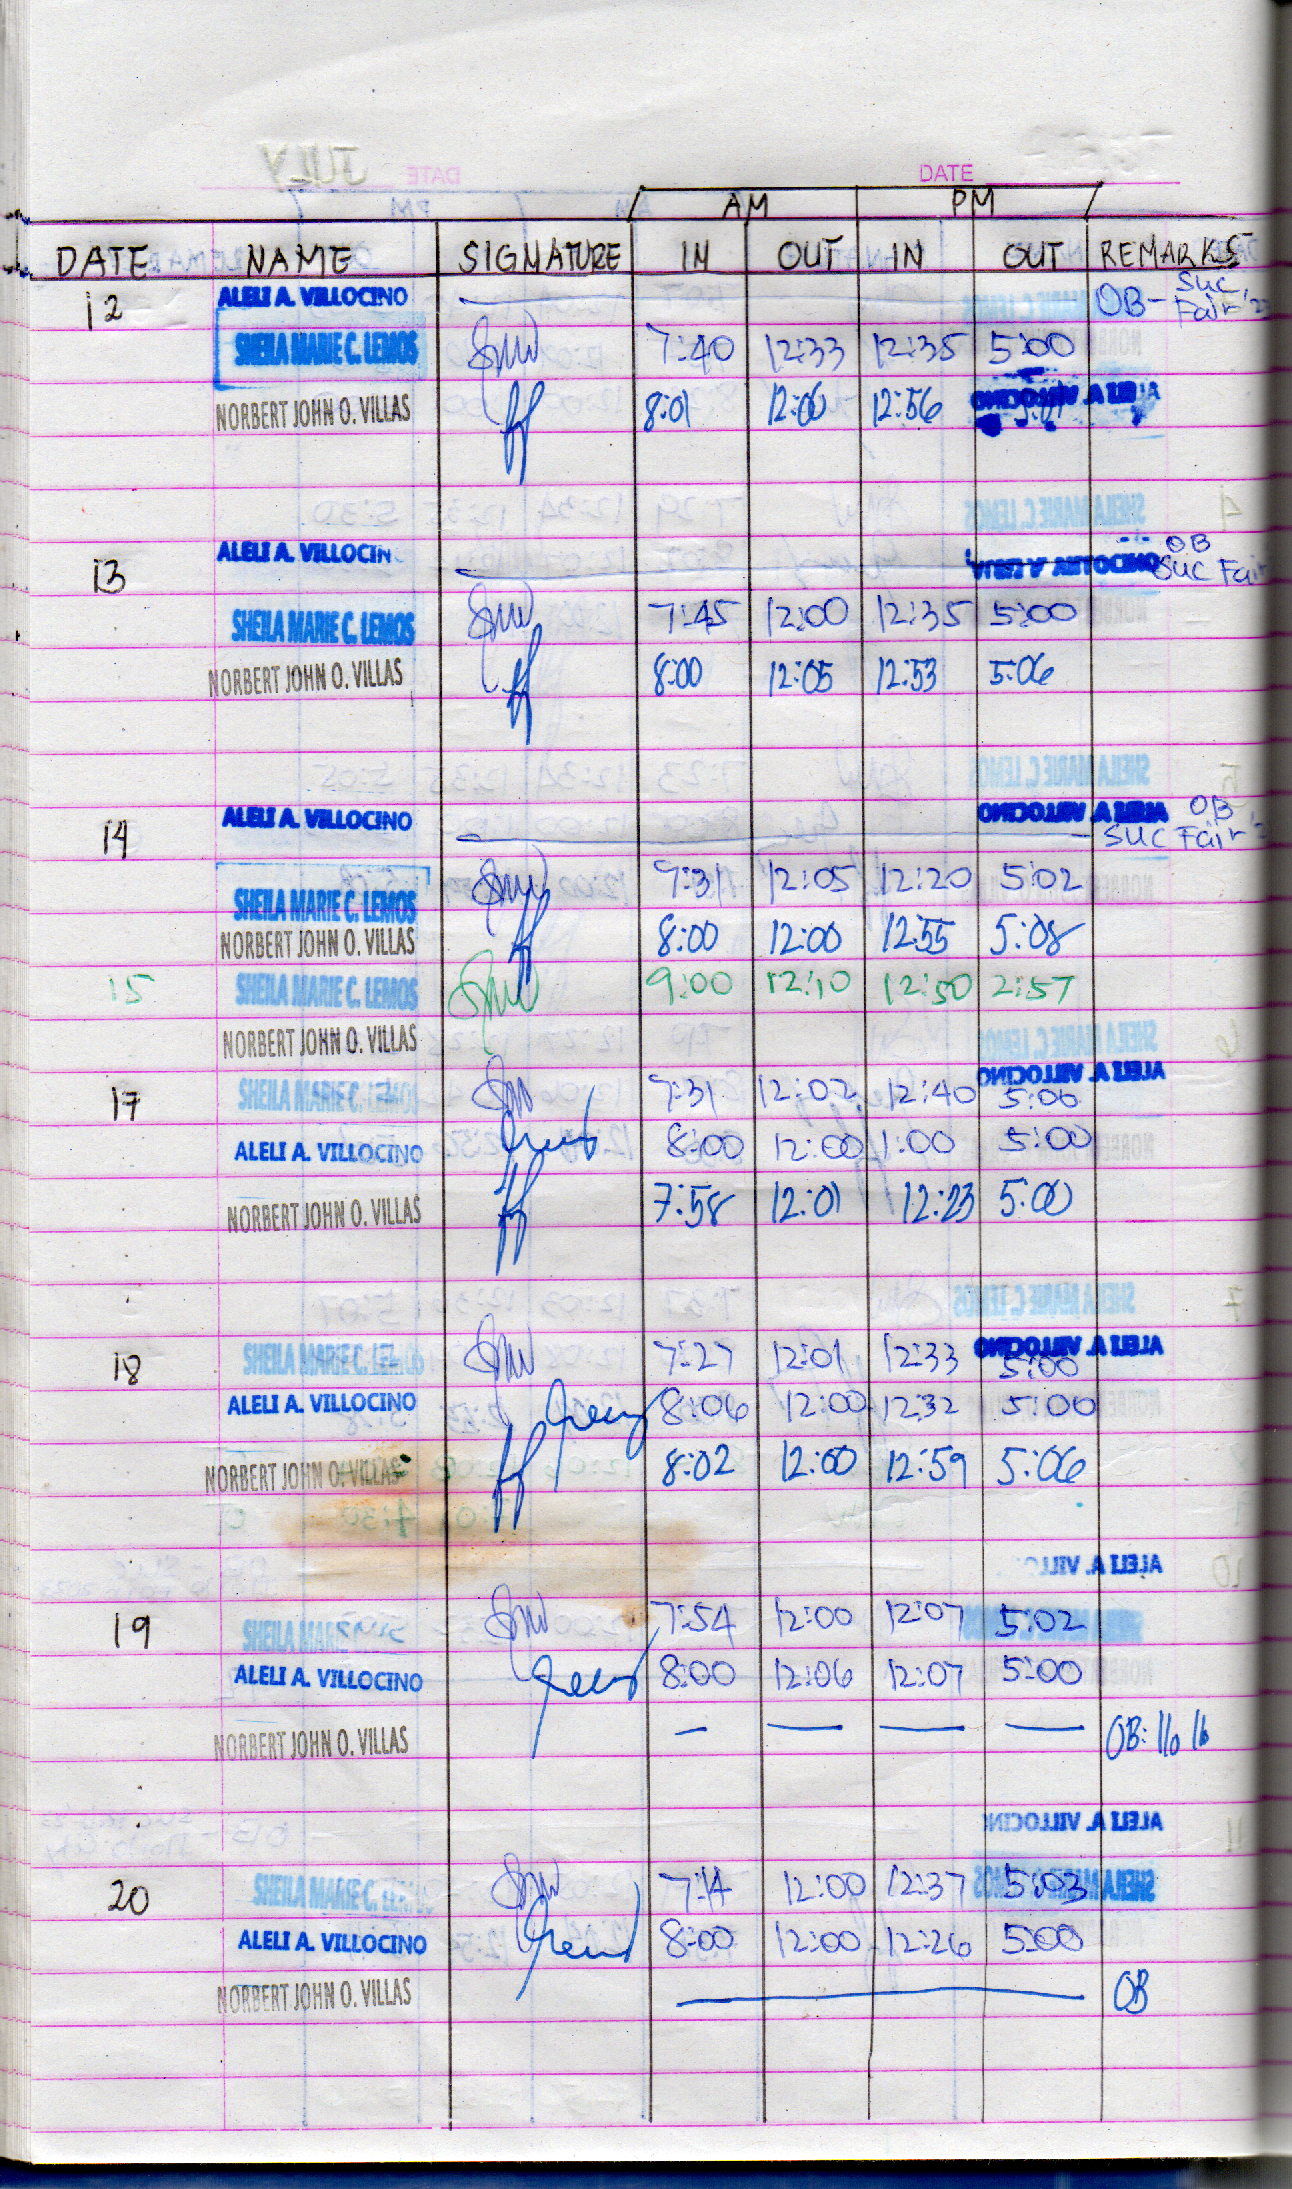 DATE
AM PM
DATE NAME SIGNATURE IN OUT IN OUT REMARKS
12 ALELI A. VILLOCINO OB- SUC
Fair
SHEILA MARIE C. LEMOS 7:40 12:33 12:35 5:00
NORBERT JOHN O. VILLAS 8:01 12:06 12:56
13 ALELI A. VILLOCIN OB
SUC Fair
SHEILA MARIE C. LEMOS 7:45 12:00 12:35 5:00
NORBERT JOHN O. VILLAS 8:00 12:05 12:53 5:06
14 ALELI A. VILLOCINO OB
SUC Fair
SHEILA MARIE C. LEMOS 7:31 12:05 12:20 5:02
NORBERT JOHN O. VILLAS 8:00 12:00 12:55 5:08
15 SHEILA MARIE C. LEMOS 9:00 12:10 12:50 2:57
NORBERT JOHN O. VILLAS
17 SHEILA MARIE C. LEMOS 7:31 12:02 12:40 5:00
ALELI A. VILLOCINO 8:00 12:00 1:00 5:00
NORBERT JOHN O. VILLAS 7:58 12:01 12:23 5:00
18 SHEILA MARIE C. LEMOS 7:27 12:01 12:33 5:00
ALELI A. VILLOCINO 8:06 12:00 12:32 5:00
NORBERT JOHN O. VILLAS 8:02 12:00 12:59 5:06
19 SHEILA MARIE 7:54 12:00 12:07 5:02
ALELI A. VILLOCINO 8:00 12:06 12:07 5:00
NORBERT JOHN O. VILLAS — — — — OB:
20 SHEILA MARIE C. 7:14 12:00 12:37 5:03
ALELI A. VILLOCINO 8:00 12:00 12:26 5:00
NORBERT JOHN O. VILLAS OB